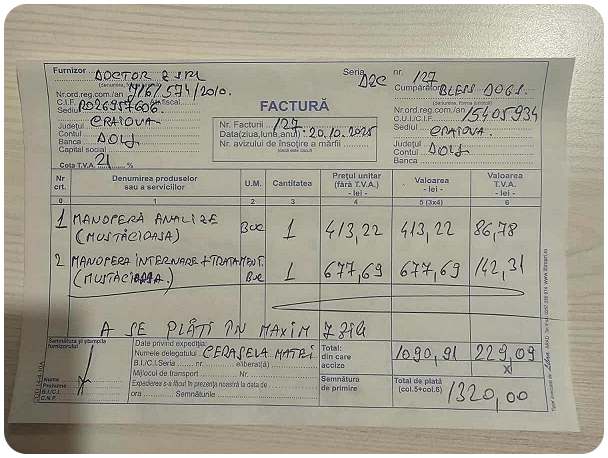 Furnizor DOCTOR 2 SRL
Seria DZC nr. 127
Cumpărător BLESS DOGS.
Nr.ord.reg.com./an 716/574/2010.
C.I.F. RO26957606. fiscal
C.U.I./C.I.F. 15405934
Sediul CRAIOVA.
Sediul CRAIOVA.
Județul DOLJ
Județul DOLJ
Contul
Contul
Banca
Banca
Capital social
Cota T.V.A. 21 %
FACTURĂ
Nr. Facturii 127.
Data(ziua,luna,anul) 20.10.2025
Nr. avizului de însoțire a mărfii
(dacă este cazul)
Nr. crt. Denumirea produselor sau a serviciilor U.M. Cantitatea Prețul unitar (fără T.V.A.) - lei - Valoarea - lei - Valoarea T.V.A. - lei -
0 1 2 3 4 5 (3x4) 6
1 MANOPERĂ ANALIZE BUC 1 413,22 413,22 86,78
(MUSTĂCIOASA)
2 MANOPERA INTERNARE + TRATAMENT. BUC 1 677,69 677,69 142,31
(MUSTĂCIOASA.)
A SE PLĂTI ÎN MAXIM 7 ZILE
Semnătura și ștampila furnizorului
Data privind expediția:
Numele delegatului CERASELA MATEI
B.I./C.I.Seria nr. eliberat(ă)
Mijlocul de transport Nr.
Expedierea s-a făcut în prezența noastră la data de
ora Semnăturile
Total: din care accize 1090,91 229,09
X
Semnătura de primire
Total de plată (col.5+col.6) 1320,00
Nume
Prenume
B.I./C.I.
C.N.P.